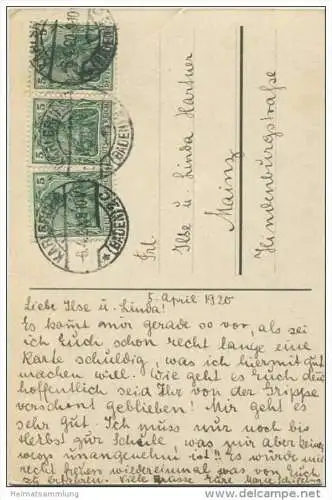 5
5
5
KARLSRUHE
(BADEN)
Frl.
Ilse u. Linda Hartner
Mainz
Hindenburgstraße
5. April 1920
Liebe Ilse u. Linda!
Es kommt mir gerade so vor, als sei
ich Euch schon recht lange eine
Karte schuldig, was ich hiermit gut
machen will. Wie geht es Euch denn
hoffentlich seid Ihr von der Grippe
verschont geblieben! Mir geht es
sehr gut. Ich muss nur noch bis
Herbst zur Schule was mir aber
unangenehm ist!! Es würde mich
recht freuen wiedereinmal was von Euch
zu erfahren. Viele Grüsse Eure
www.heimatsammlung.de